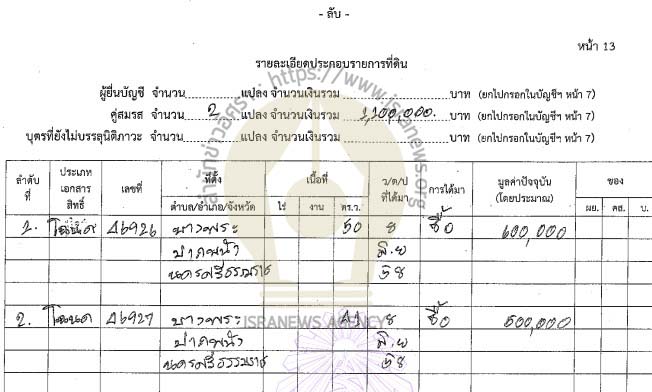 - ลับ -
หน้า 13
รายละเอียดประกอบรายการที่ดิน
ผู้ยื่นบัญชี จำนวน..............แปลง จำนวนเงินรวม..............บาท (ยกไปกรอกในบัญชีฯ หน้า 7)
คู่สมรส จำนวน......2......แปลง จำนวนเงินรวม......1,100,000.......บาท (ยกไปกรอกในบัญชีฯ หน้า 7)
บุตรที่ยังไม่บรรลุนิติภาวะ จำนวน..............แปลง จำนวนเงินรวม..............บาท (ยกไปกรอกในบัญชีฯ หน้า 7)
ลำดับที่ ประเภทเอกสารสิทธิ์ เลขที่ ที่ตั้ง เนื้อที่ ว/ด/ป ที่ได้มา การได้มา มูลค่าปัจจุบัน (โดยประมาณ) ของ
ตำบล/อำเภอ/จังหวัด ไร่ งาน ตร.ว. ผย. คส. บ.
1. โฉนด 46926 บางพระ 50 8 ซื้อ 600,000
ปากพนัง มิ.ย
นครศรีธรรมราช 38
2. โฉนด 46927 บางพระ 41 8 ซื้อ 500,000
ปากพนัง มิ.ย
นครศรีธรรมราช 38
สำนักข่าวอิศรา : https://www.isranews.org
ISRANEWS AGENCY